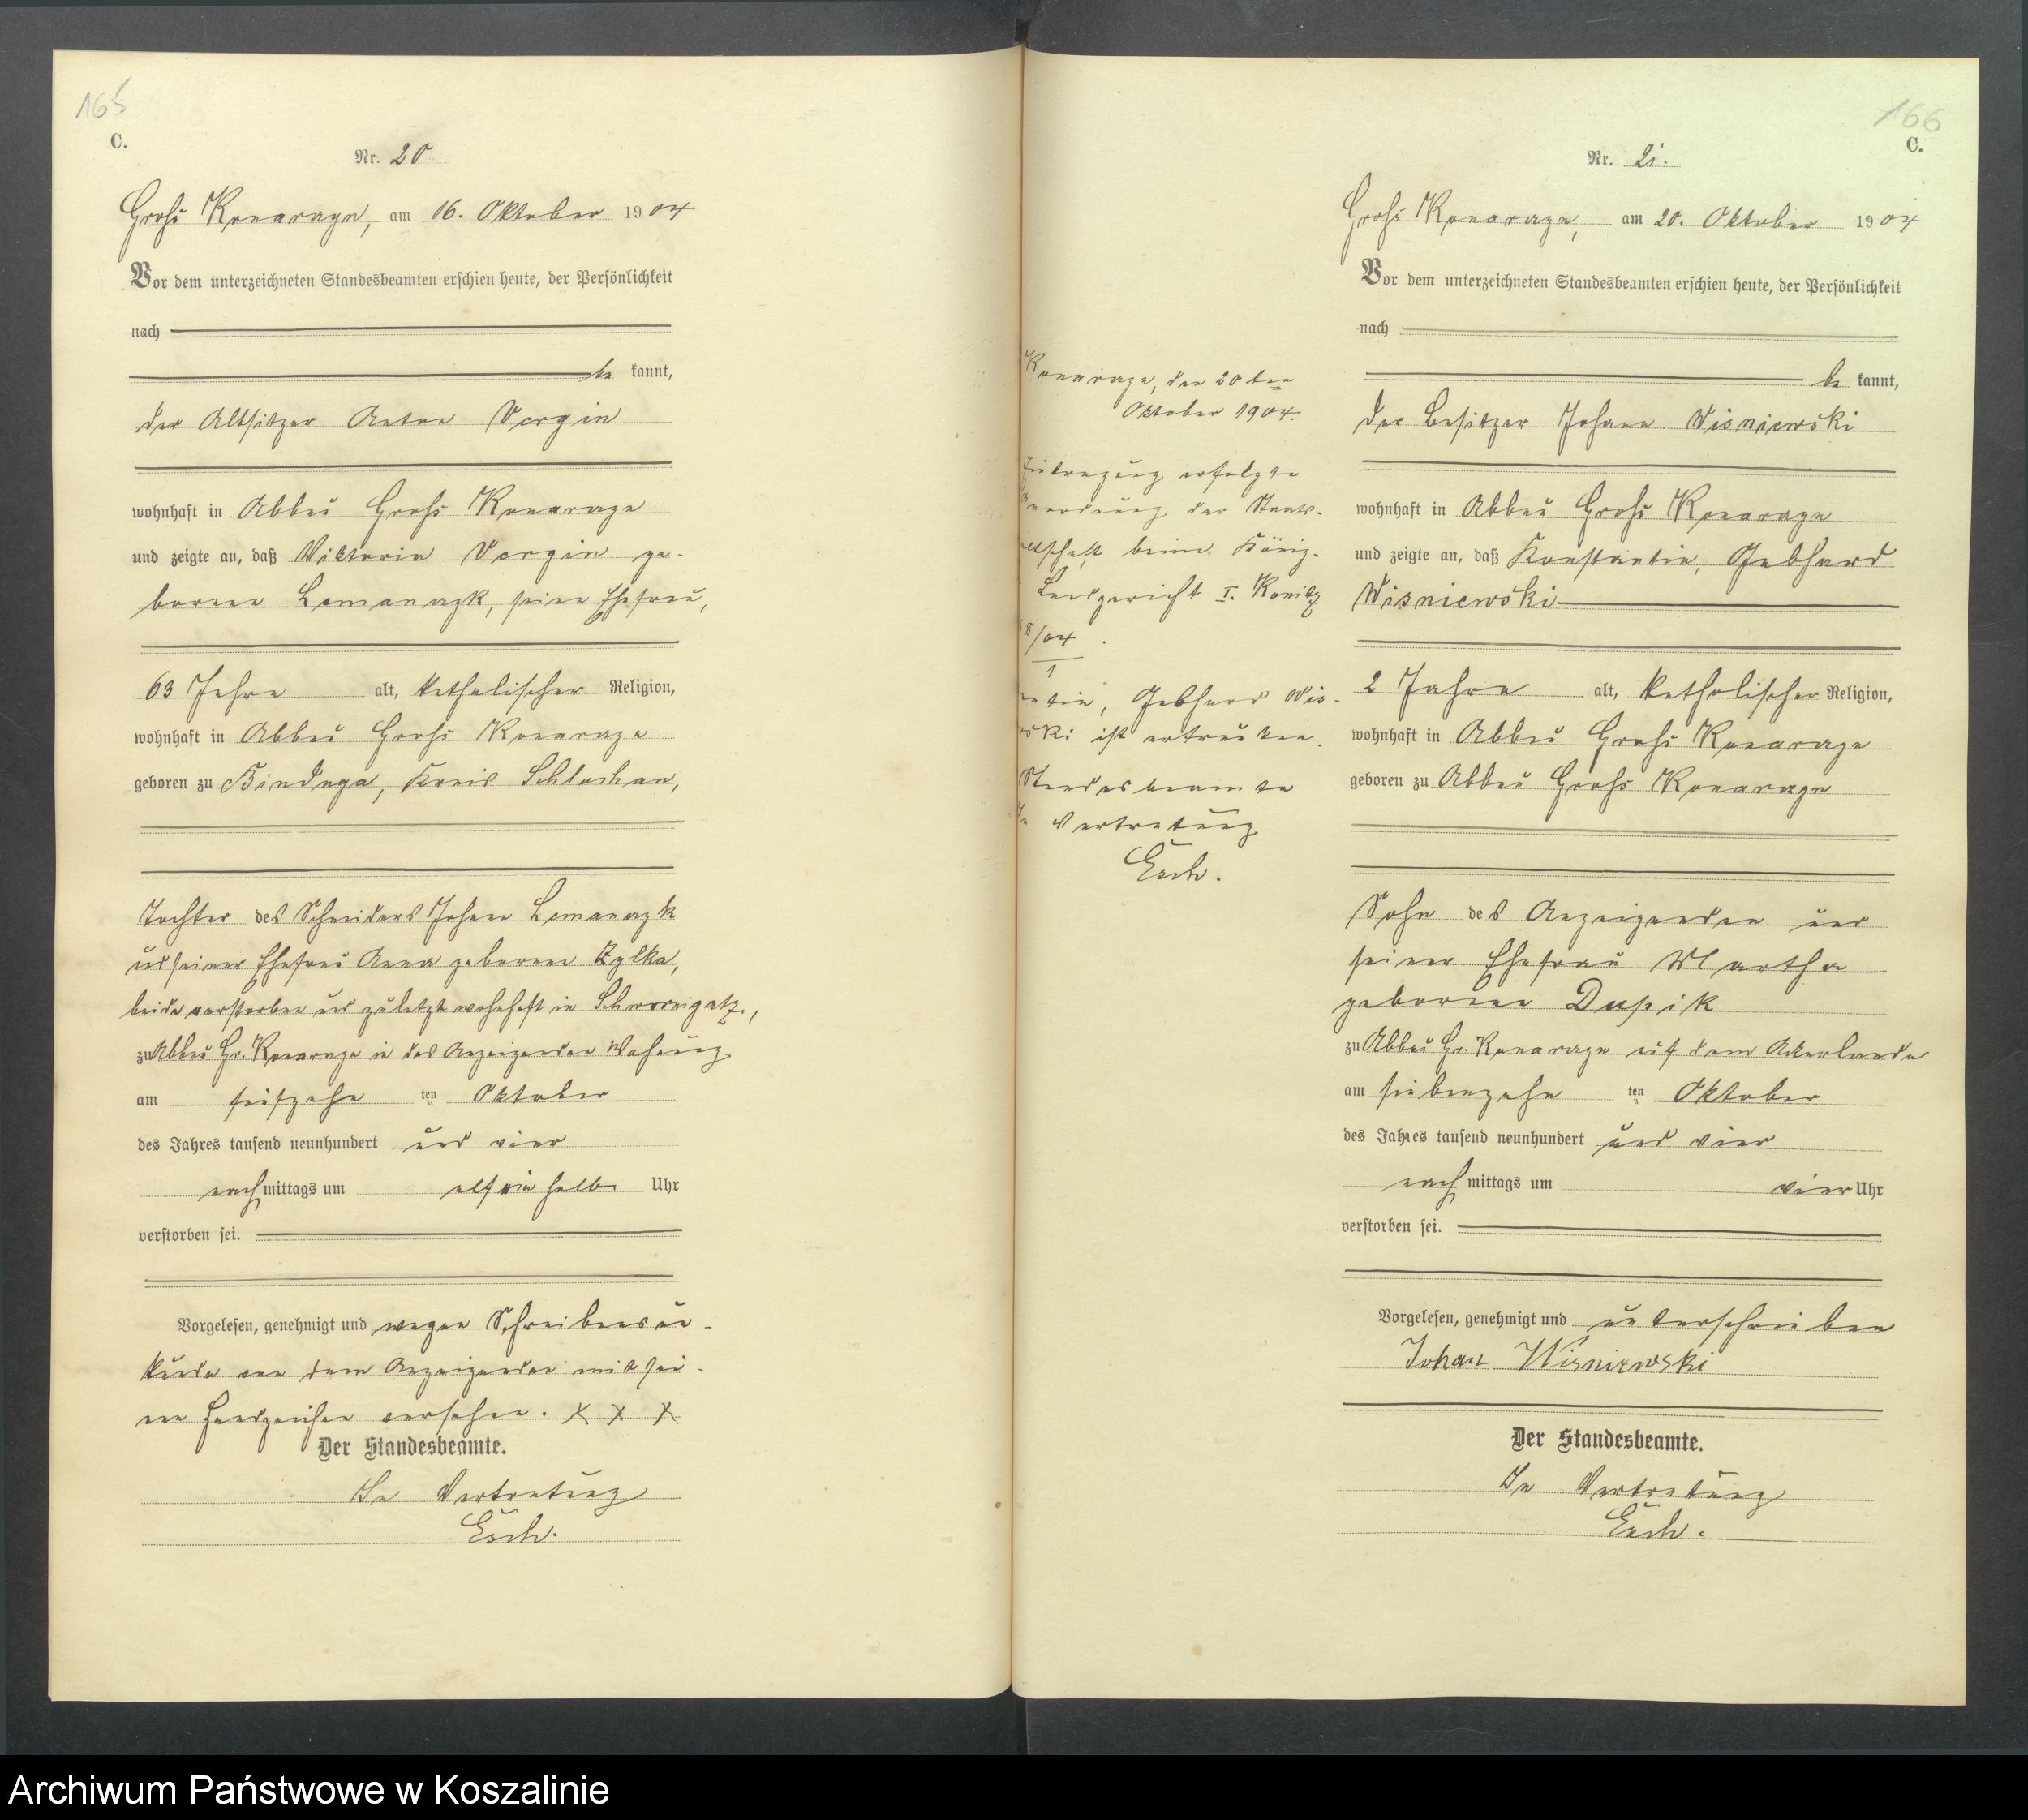 165
C.
Nr. 20
Groß Konarzyn, am 16. Oktober 1904
Vor dem unterzeichneten Standesbeamten erschien heute, der Persönlichkeit
nach
be kannt,
der Altsitzer Anton Vergin
wohnhaft in Abbau Groß Konarzyn
und zeigte an, daß Viktoria Vergin ge-
borene Lemanczyk, seine Ehefrau,
63 Jahre alt, katholischer Religion,
wohnhaft in Abbau Groß Konarzyn
geboren zu Binduga, Kreis Schlochau,
Tochter des Schneiders Johann Lemanczyk
und seiner Ehefrau Anna geborene Zylka,
beide verstorben und zuletzt wohnhaft in Schwornigatz,
zu Abbau Gr. Konarzyn in des Anzeigenden Wohnung
am fünfzehn ten Oktober
des Jahres tausend neunhundert und vier
nach mittags um elf ein halb Uhr
verstorben sei.
Vorgelesen, genehmigt und wegen Schreibensun-
kunde von dem Anzeigenden mit sei-
nen Handzeichen versehen. X X X
Der Standesbeamte.
In Vertretung
Esch.
166
C.
Nr. 21.
Groß Konarzyn, am 20. Oktober 1904
Vor dem unterzeichneten Standesbeamten erschien heute, der Persönlichkeit
nach
be kannt,
der Besitzer Johann Wisniewski
wohnhaft in Abbau Groß Konarzyn
und zeigte an, daß Konstantin, Gebhard
Wisniewski
2 Jahre alt, katholischer Religion,
wohnhaft in Abbau Groß Konarzyn
geboren zu Abbau Groß Konarzyn
Sohn des Anzeigenden und
seiner Ehefrau Martha
geborene Dupik
zu Abbau Gr. Konarzyn auf dem Ackerlande
am siebenzehn ten Oktober
des Jahres tausend neunhundert und vier
nach mittags um vier Uhr
verstorben sei.
Vorgelesen, genehmigt und unterschrieben
Johan Wisniewski
Der Standesbeamte.
In Vertretung
Esch.
Konarzyn, den 20ten
Oktober 1904.
Eintragung erfolgte
Anordnung der Staats-
altschaft beim König-
Landgericht I. Konitz
8/04
1
ntin, Gebhard Wis-
wski ist ertrunken.
Standesbeamte
In Vertretung
Esch.
Archiwum Państwowe w Koszalinie